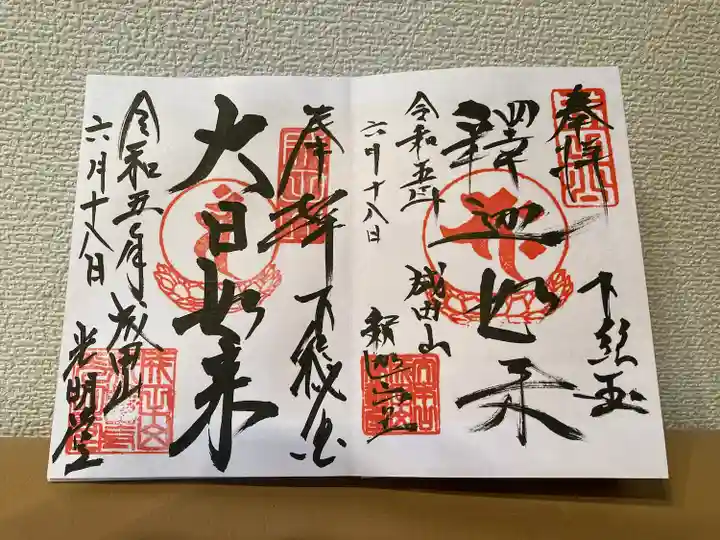 奉拝
下総国
釋迦如来
令和五年
六月十八日
成田山
釈迦堂
奉拝
下総国
大日如来
令和五年
六月十八日
成田山
光明堂